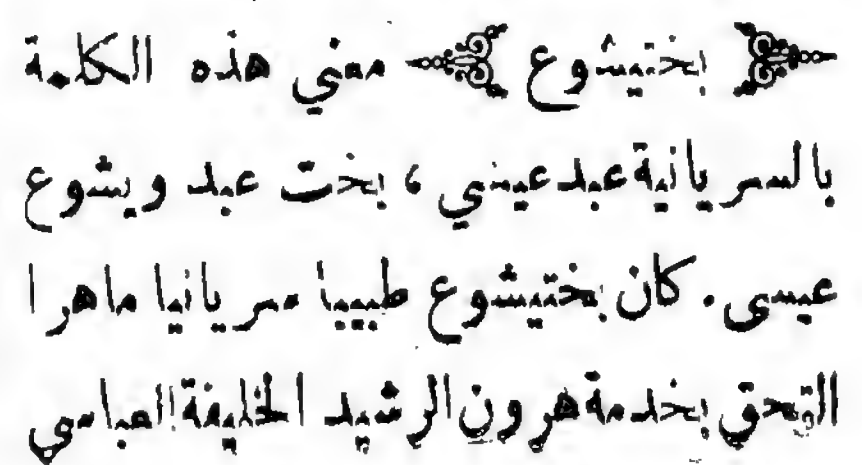 ﴿ بختيشوع ﴾ معني هذه الكلمة
بالسريانية عبد عيسي ، بخت عبد ويشوع
عيسى . كان بختيشوع طبيبا سريانيا ماهرا
التحق بخدمة هرون الرشيد الخليفة العباسي